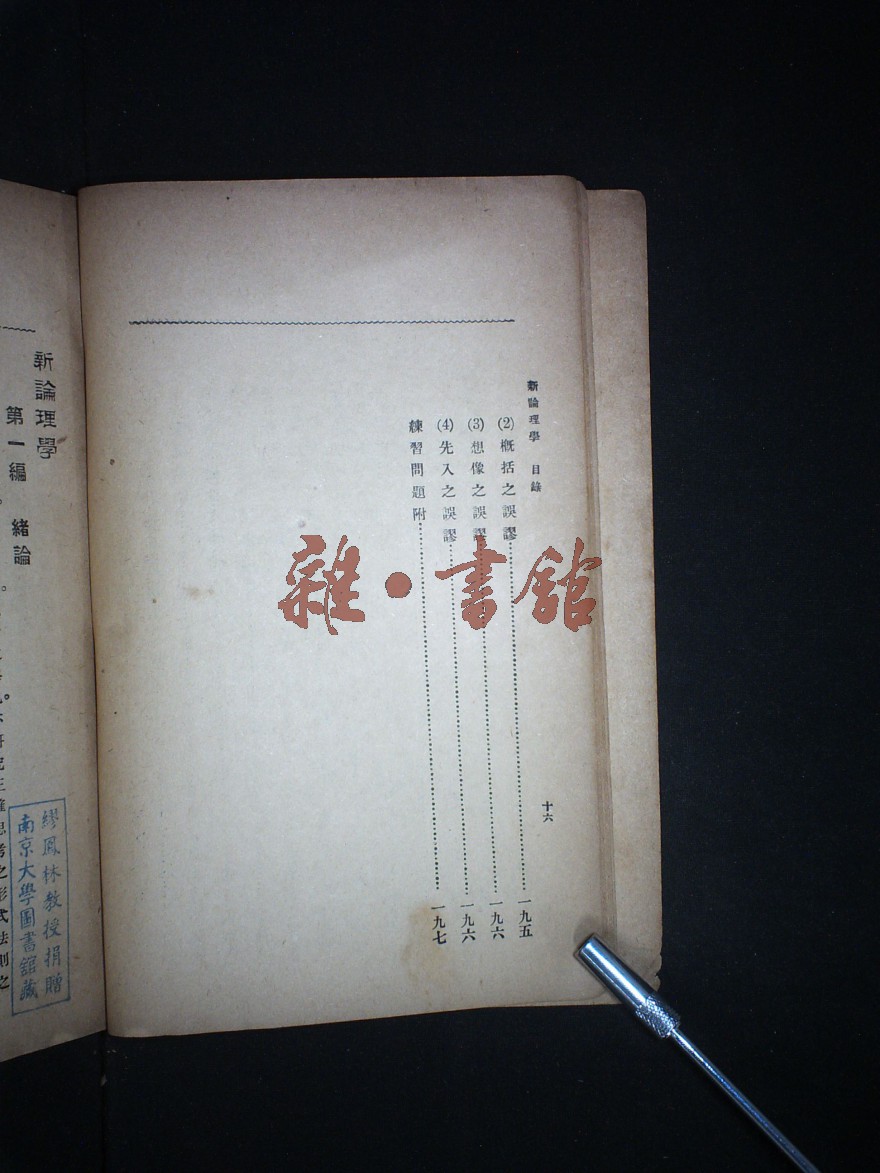 新論理學 目錄
(2)概括之誤謬……一九五
(3)想像之誤謬……一九六
(4)先入之誤謬……一九六
練習問題附……一九七
十六
新論理學
第一編 緒論
思考之形式法則之
繆鳳林教授捐贈
南京大學圖書館藏
雜·書館